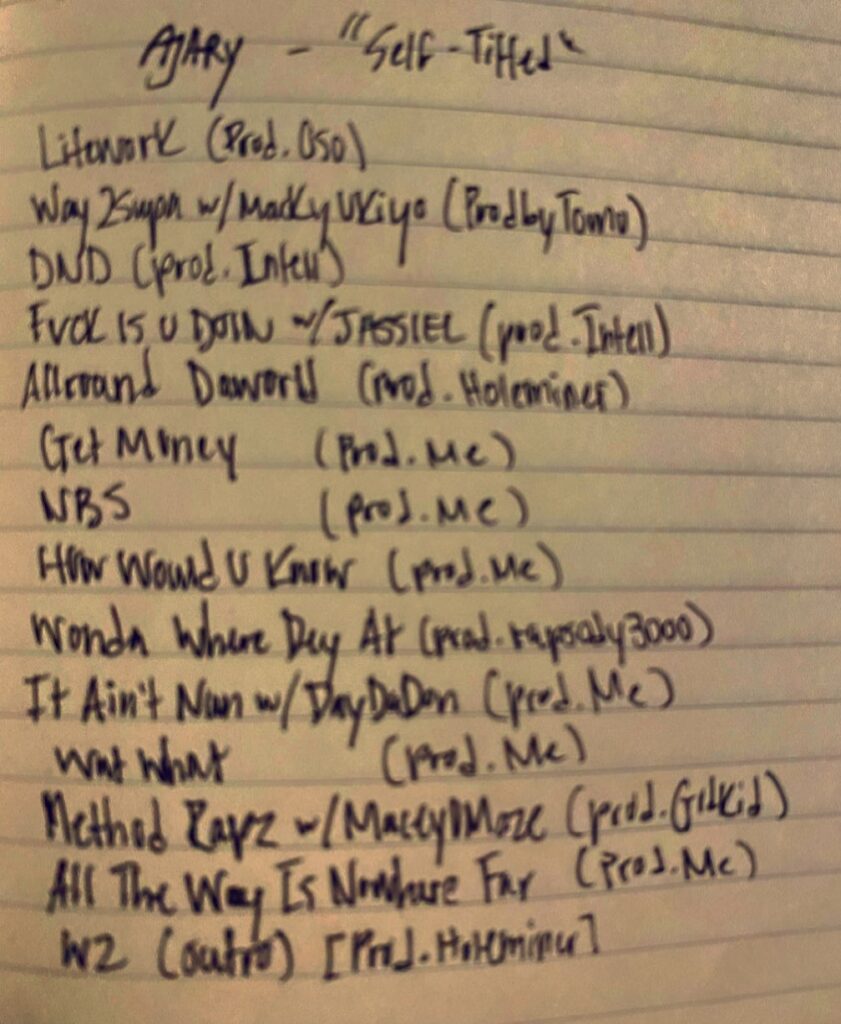 AJARY - "Self-Titled"
Litework (Prod. Oso)
Way 2 w/Macky Ukiyo (ProdbyTomo)
DND (prod. Intell)
FVCK IS U DOIN w/JASSIEL (prod. Intell)
Allround Daworld (prod. Holeminer)
Get Money (Prod. Me)
NBS (prod. Me)
How Would U Know (prod. Me)
Wonda Where Dey At (prod. rapsody3000)
It Ain't Nun w/DayDaDon (prod. Me)
Wat What (prod. Me)
Method (prod. )
All The Way Is Nowhare Far (Prod. Me)
W2 (outro) [Prod. Holeminer]